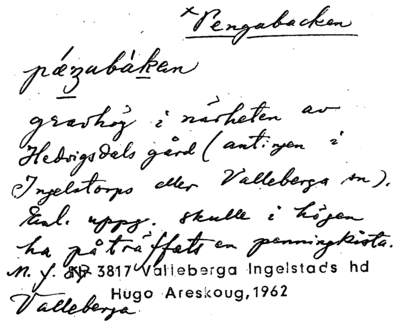 × Pengabacken
pæzabákan
gravhög i närheten av
Hedvigsdals gård (antingen i
Ingelstorps eller Valleberga sn).
Enl. uppg. skulle i högen
ha påträffats en penningkista.
M. f.
NP 3817 Valleberga Ingelstads hd
Hugo Areskoug, 1962
Valleberga